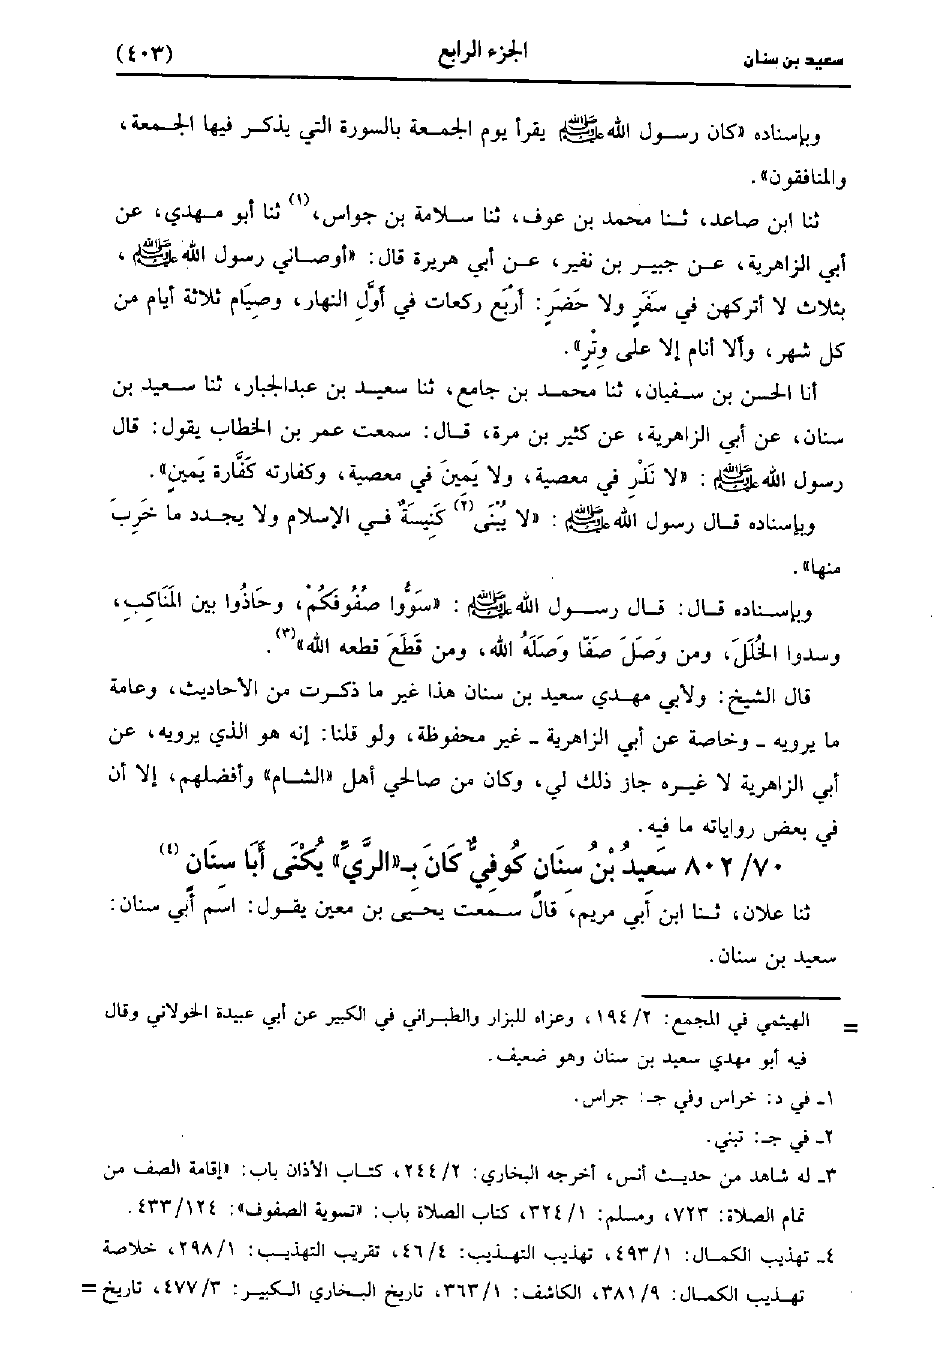 سعيد بن سنان الجزء الرابع (٤٠٣)
وبإسناده «كان رسول الله ﷺ يقرأ يوم الجمعة بالسورة التي يذكر فيها الجمعة،
والمنافقون».
ثنا ابن صاعد، ثنا محمد بن عوف، ثنا سلامة بن جواس،(١) ثنا أبو مهدي، عن
أبي الزاهرية، عن جبير بن نفير، عن أبي هريرة قال: «أوصاني رسول الله ﷺ،
بثلاث لا أتركهن في سَفَرٍ ولا حَضَرٍ: أرْبَع ركعات في أوَّلِ النهار، وصِيَام ثلاثة أيام من
كل شهر، وألا أنام إلا على وِتْرٍ».
أنا الحسن بن سفيان، ثنا محمد بن جامع، ثنا سعيد بن عبدالجبار، ثنا سعيد بن
سنان، عن أبي الزاهرية، عن كثير بن مرة، قال: سمعت عمر بن الخطاب يقول: قال
رسول الله ﷺ: «لا نَذْرِ في معصية، ولا يَمينَ في معصية، وكفارته كَفَّارة يَمينٍ».
وبإسناده قال رسول الله ﷺ: «لا يُبْنَى(٢) كَنِيسَةٌ في الإسلام ولا يجدد ما خَرِبَ
منها».
وبإسناده قال: قال رسول الله ﷺ: «سَوُّوا صُفُوفَكُمْ، وحَاذُوا بين المَنَاكِبِ،
وسدوا الخُلَلَ، ومن وَصَلَ صَفّا وَصَلَهُ الله، ومن قَطَعَ قطعه الله»(٣).
قال الشيخ: ولأبي مهدي سعيد بن سنان هذا غير ما ذكرت من الأحاديث، وعامة
ما يرويه - وخاصة عن أبي الزاهرية - غير محفوظة، ولو قلنا: إنه هو الذي يرويه، عن
أبي الزاهرية لا غيره جاز ذلك لي، وكان من صالحي أهل «الشام» وأفضلهم، إلا أن
في بعض رواياته ما فيه.
٨٠٢/٧٠ سَعِيدُ بْنُ سِنَانٍ كُوفيٌّ كَانَ بـ«الرَّيِّ» يُكْنَى أَبَا سِنَانٍ(٤)
ثنا علان، ثنا ابن أبي مريم، قال سمعت يحيى بن معين يقول: اسم أبي سنان:
سعيد بن سنان.
= الهيثمي في المجمع: ١٩٤/٢، وعزاه للبزار والطبراني في الكبير عن أبي عبيدة الخولاني وقال
فيه أبو مهدي سعيد بن سنان وهو ضعيف.
١- في د: خراس وفي جـ: جراس.
٢- في جـ: تبني.
٣- له شاهد من حديث أنس، أخرجه البخاري: ٢٤٤/٢، كتاب الأذان باب: «إقامة الصف من
تمام الصلاة: ٧٢٣، ومسلم: ٣٢٤/١، كتاب الصلاة باب: «تسوية الصفوف»: ٤٣٣/١٢٤.
٤- تهذيب الكمال: ٤٩٣/١، تهذيب التهذيب: ٤٦/٤، تقريب التهذيب: ٢٩٨/١، خلاصة
تهذيب الكمال: ٣٨١/٩، الكاشف: ٣٦٣/١، تاريخ البخاري الكبير: ٤٧٧/٣، تاريخ =